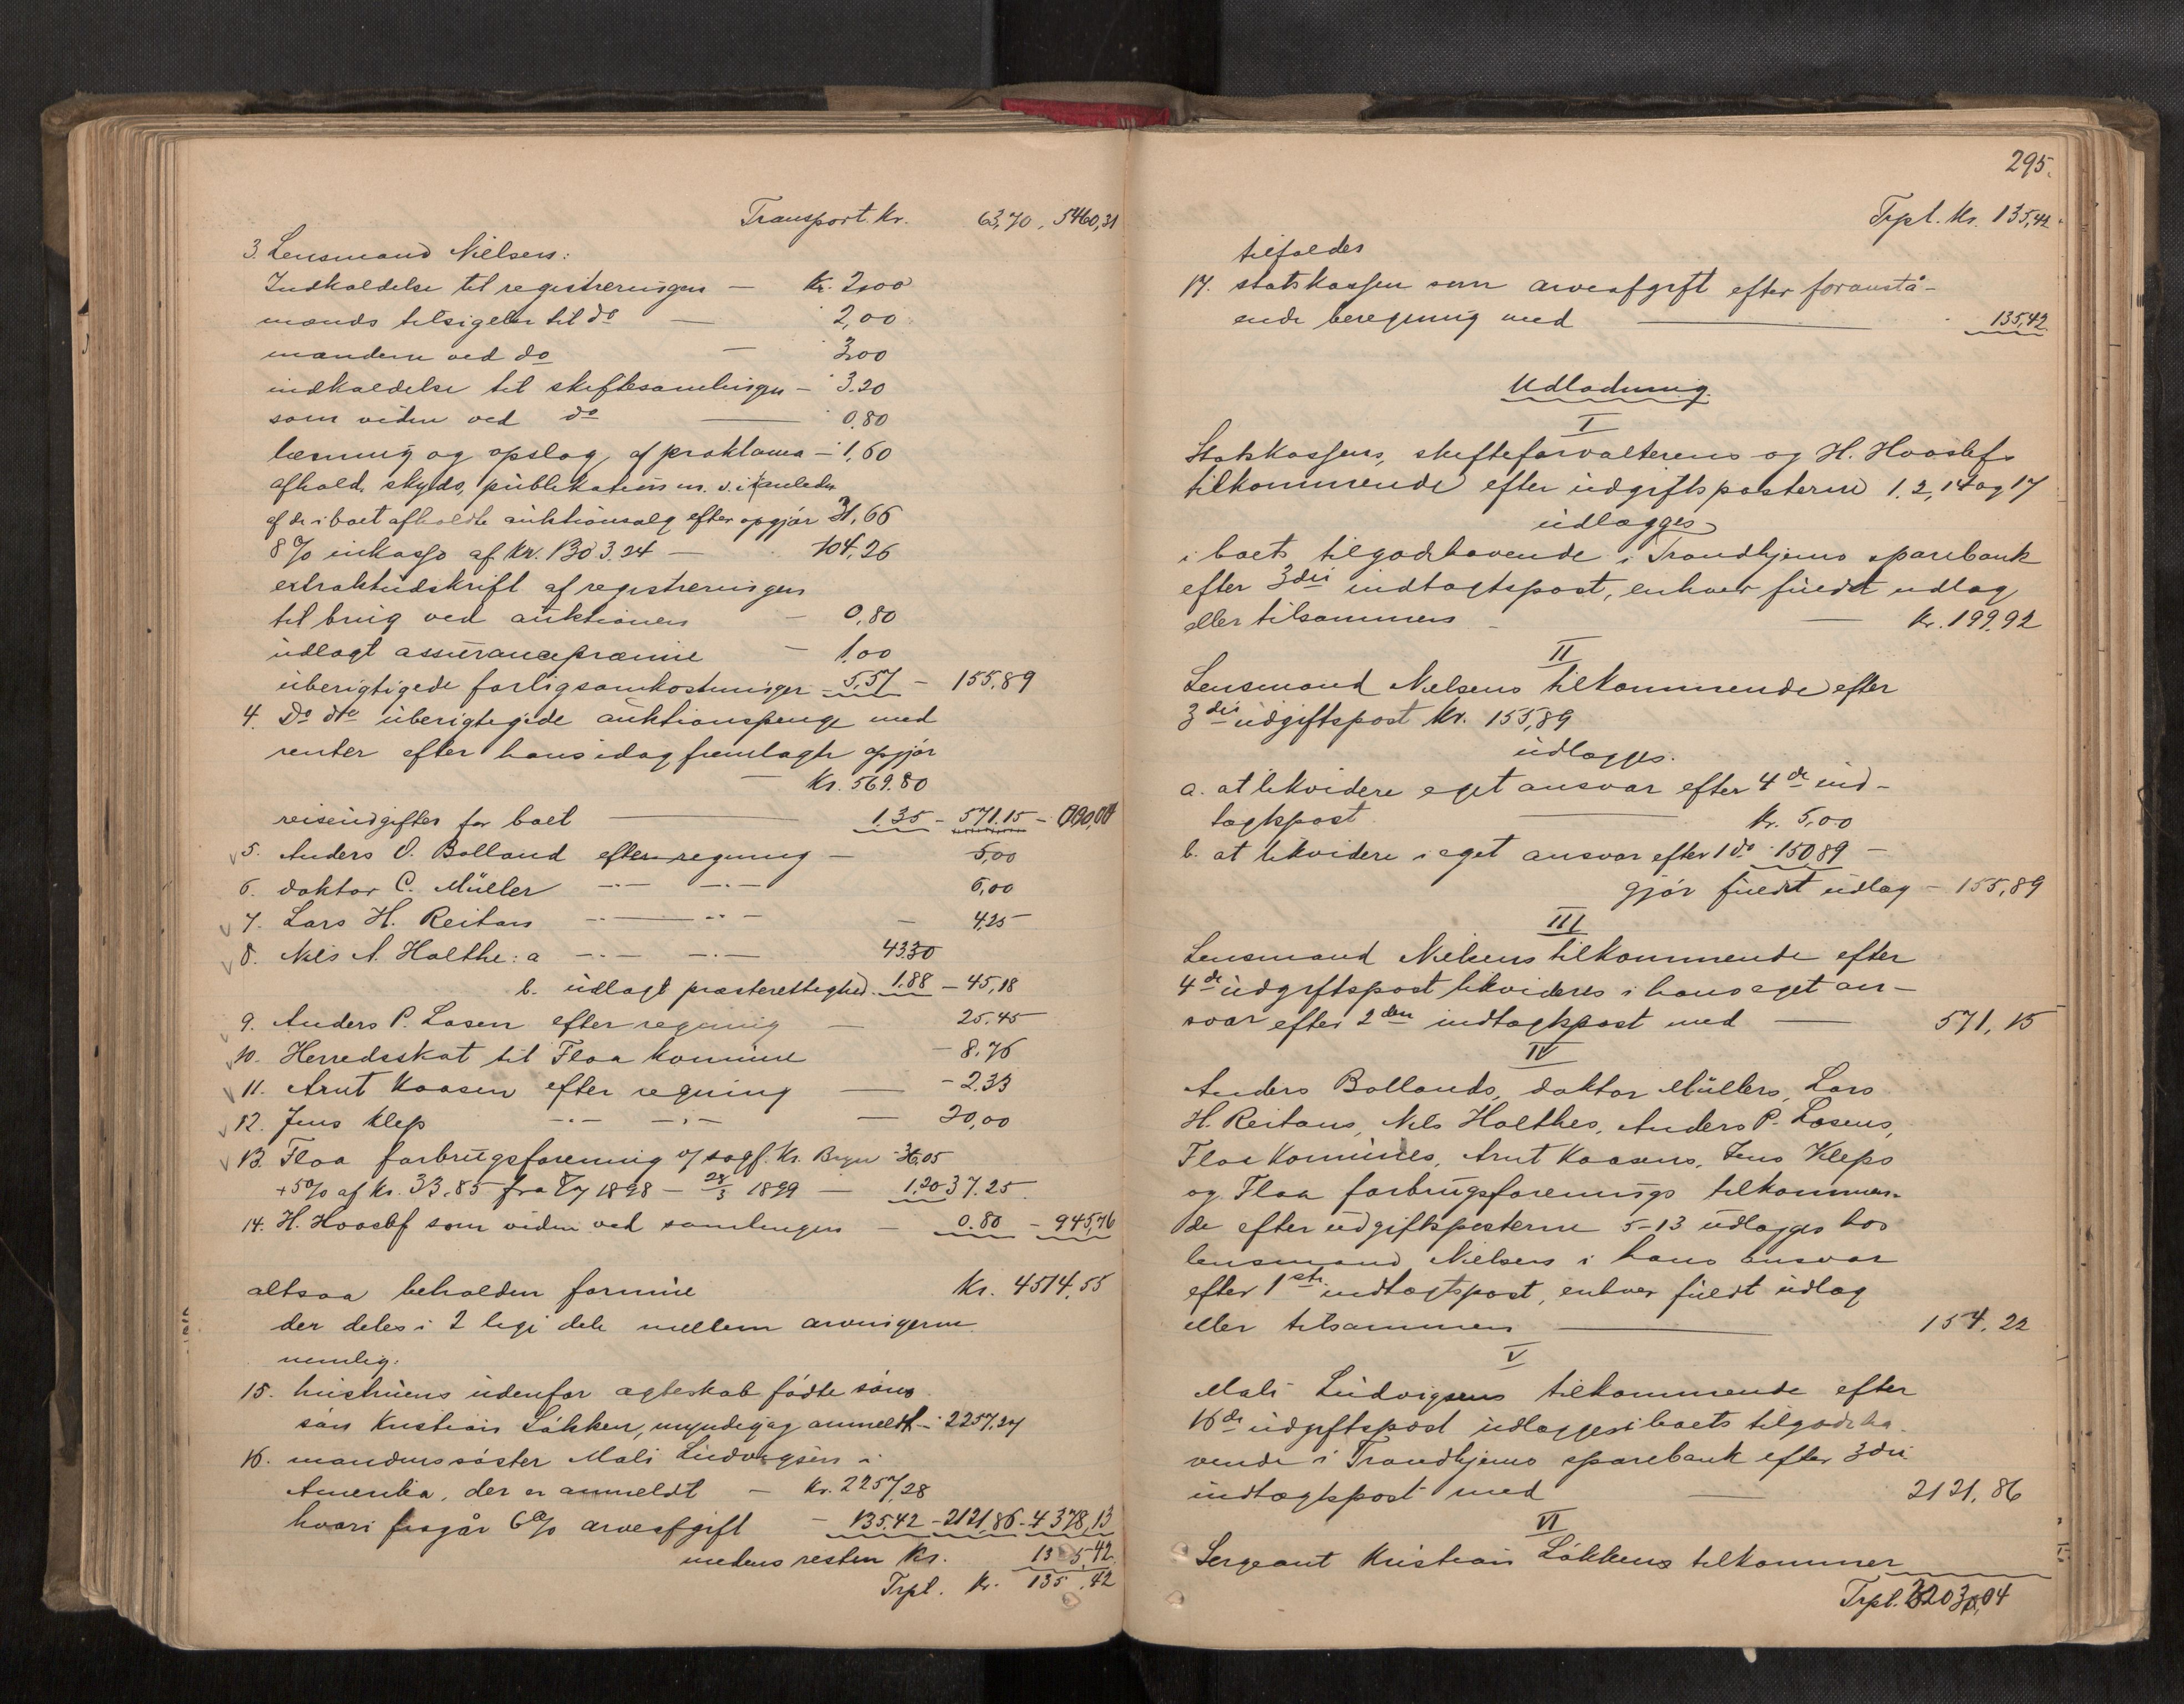 Transport. Kr. 63,70, 5460,31
3. Lensmand Nielsen:
Indkaldelse til registreringen – Kr. 2,00
mænds tilsigelse til do – 2,00
manden ved do – 3,00
indkaldelse til skiftesamlingen – 3.20
som vidne ved do – 0,80
læsning og opslag af proklama – 1,60
afhold, skyds, publikation m. v. i anledn
af de i boet afholdte auktionsalg efter opgjör 31,66
8 % inkasso af Kr. 1303.24 – 104,26
extraktudskrift af registreringen
til brug ved auktionen – 0,80
udlagt assurancepræmie – 1,00
überigtigede forligsomkostninger – 5,57 – 155,89
4. Do dto uberigtigede auktionspenge med
renter efter hans idag fremlagte opgjör
– Kr. 569.80
reiseudgifter for boet – 1.35 – 571.15 –
5. Anders O. Bolland efter regning – 5,00
6. doktor C. Müller –·– –·– 6,00
7. Lars H. Reitan –·– –·– – 4,25
8. Nils N. Holthe: a –·– –·– 43.30
b. udlagt præsterettighed. 1.88 – 45,18
9. Anders P. Losen efter regning – 25.45
10. Herredsskat til Flaa Kommune – 8.76
11. Arnt Kaasen efter regning – 2.33
12. Jens Klep –·– –·– – 20,00
13. Flaa forbrugsforening v/ sagf. Kr. Bryn 36,05
+5% af Kr. 33.85 fra 8/7 1898 – 28/3 1899 – 1.20 37.25
14. H. Hoaslef som vidne ved samlingen – 0.80 – 945,76
altsaa beholden formue Kr. 4514,55
der deles i 2 lige dele mellem arvingerne
nemlig:
15. hustruens udenfor ægteskab födte söns
sön Kristian Lökken, myndig og anmeldt – 2257.27
16. mandens söster Mali Ludvigsen i
Amerika, der er anmeldt – Kr. 2257,28
hvori fragår 6% arveafgift – 135.42 – 2121,86 – 4378,13
medens resten Kr. 135,42
Trpt. Kr. 135,42
295.
Trpt. Kr. 135,42
tilfalder
17. statskassen som arveafgift efter foranstå-
ende beregning med 135,42
Udlodning.
I
Statskassens, skifteforvalterens og H. Hoaslefs
tilkommende efter udgiftsposterne 1. 2, 14 og 17
udlægges
i boets tilgodehavende i Trondhjems sparebank
efter 3die indtægtspost, enhver fuldt udlæg
eller tilsammen – Kr. 199,92
II
Lensmand Nielsens tilkommende efter
3die udgiftspost Kr. 155,89
udlægges.
a. at likvidere eget ansvar efter 4de ind-
tægtspost Kr. 5,00
b. at likvidere i eget ansvar efter 1 do – 150,89 –
gjör fuldt udlæg – 155,89
III
Lensmand Nielsens tilkommende efter
4de udgiftspost likvideres i hans eget an-
svar efter 2den indtægtspost med – 571,15
IV
Anders Bollands, doktor Müllers, Lars
H. Reitans, Nils Holthes, Anders P. Losens,
Flaa Kommunes, Arnt Kaasens, Jens Kleps
og Flaa forbrugsforenings tilkommen-
de efter udgiftsposterne 5-13 udlægges hos
lensmand Nielsen i hans ansvar
efter 1ste indtægtspost, enhver fuldt udlæg
eller tilsammen – 154.22
V
Mali Ludvigsens tilkommende efter
16de udgiftspost udlægges i boets tilgodeha-
vende i Trondhjems sparebank efter 3die
indtægtspost med – 2121,86
VI
Sergeant Kristian Lökkens tilkommen
Trpt. 3203,04